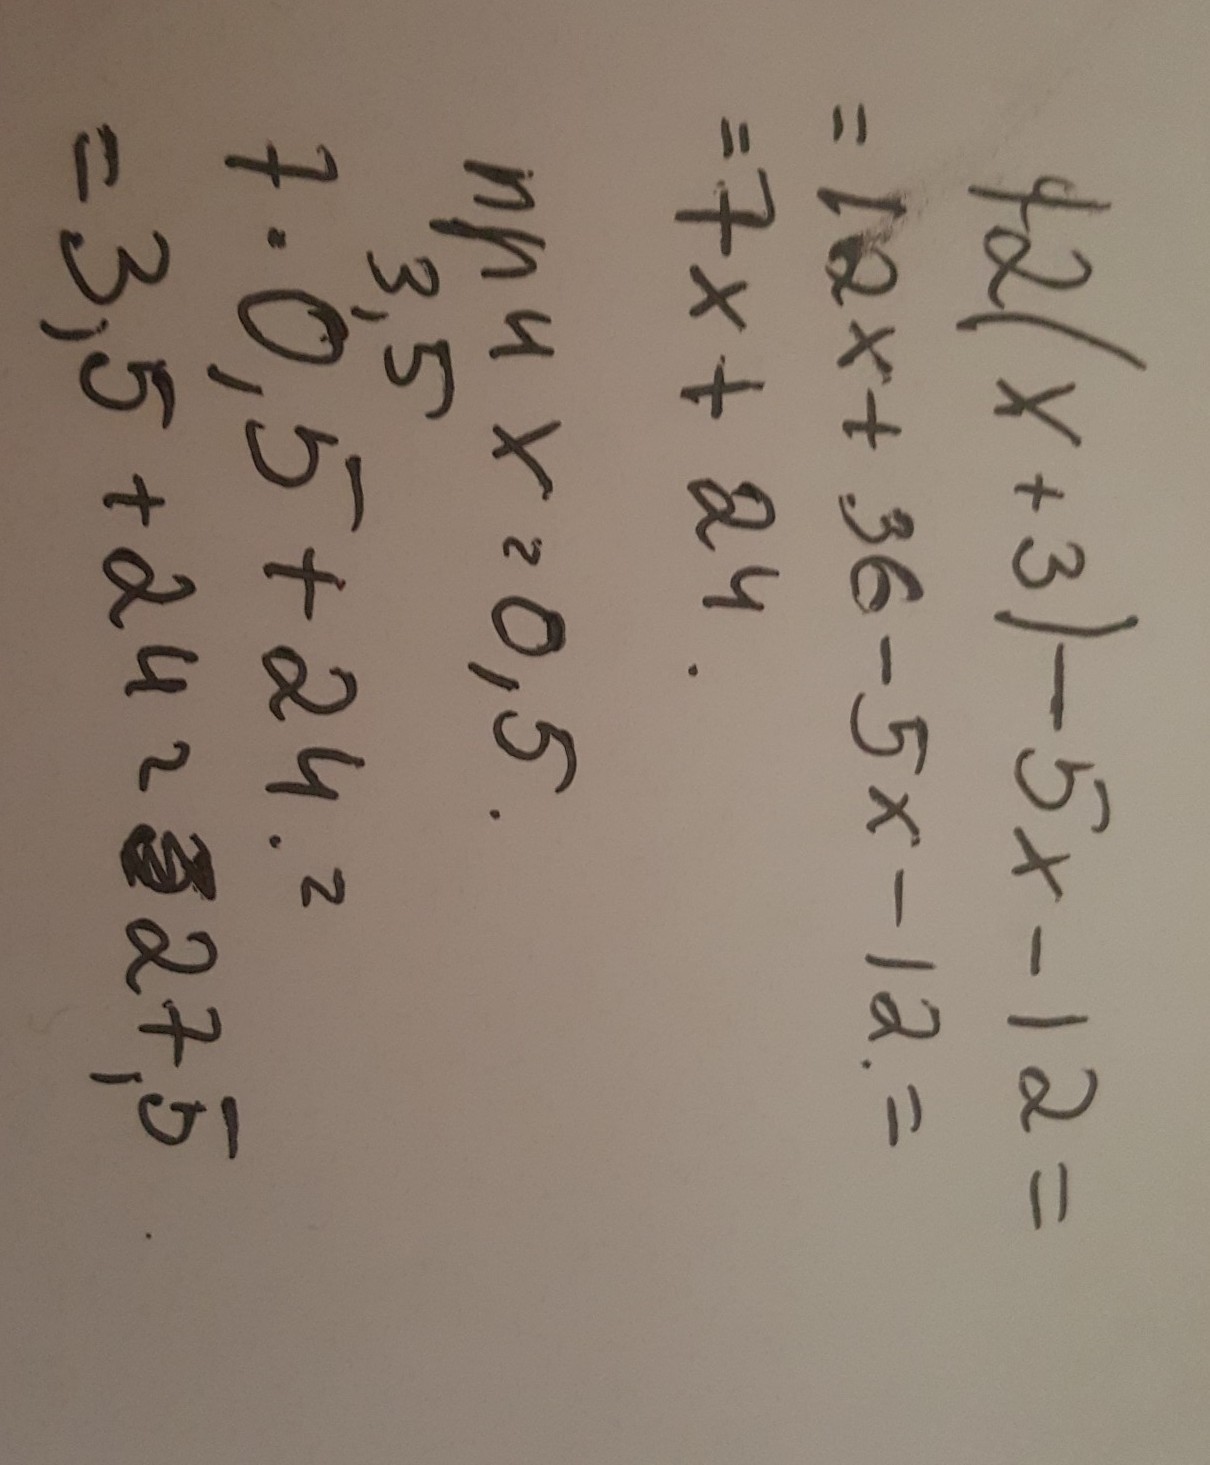 12(x+3)-5x-12=
=12x+36-5x-12.=
=7x+24.
при x=0,5.
3,5
7·0,5+24.=
=3,5+24=27,5